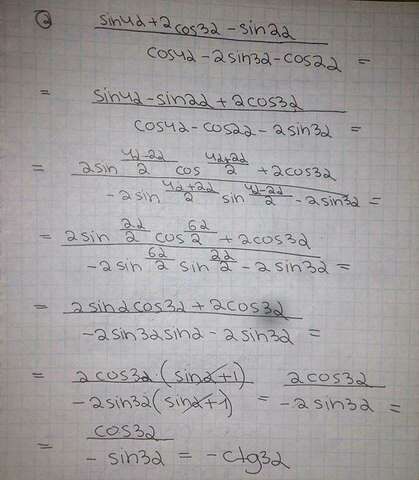 ② (sin4α + 2cos3α - sin2α) / (cos4α - 2sin3α - cos2α) =
= (sin4α - sin2α + 2cos3α) / (cos4α - cos2α - 2sin3α) =
= (2sin (4α-2α)/2 cos (4α+2α)/2 + 2cos3α) / (-2sin (4α+2α)/2 sin (4α-2α)/2 - 2sin3α) =
= (2sin 2α/2 cos 6α/2 + 2cos3α) / (-2sin 6α/2 sin 2α/2 - 2sin3α) =
= (2sinαcos3α + 2cos3α) / (-2sin3αsinα - 2sin3α) =
= (2cos3α·(sinα+1)) / (-2sin3α(sinα+1)) = (2cos3α) / (-2sin3α) =
= (cos3α) / (-sin3α) = -ctg3α